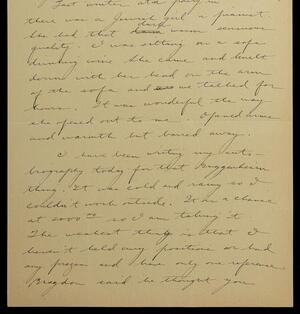 Last winter at a party in
there was a Jewish girl a pianist
She had that dark warm sensuous
quality. I was sitting on a sofa
drinking wine she came and knelt
down with her head on the arm
of the sofa and we talked for
hours. It was wonderful the way
she opened out to me. Opened
and warmth but bared away.
I have been writing my auto-
biography today for that Guggenheim
thing. It was cold and rainy so I
couldn't work outside. It is a chance
at 2000 so I am taking it
The weakest thing is that I
haven't held any positions or had
any prizes and have only one reference
Bragdon said he thought you